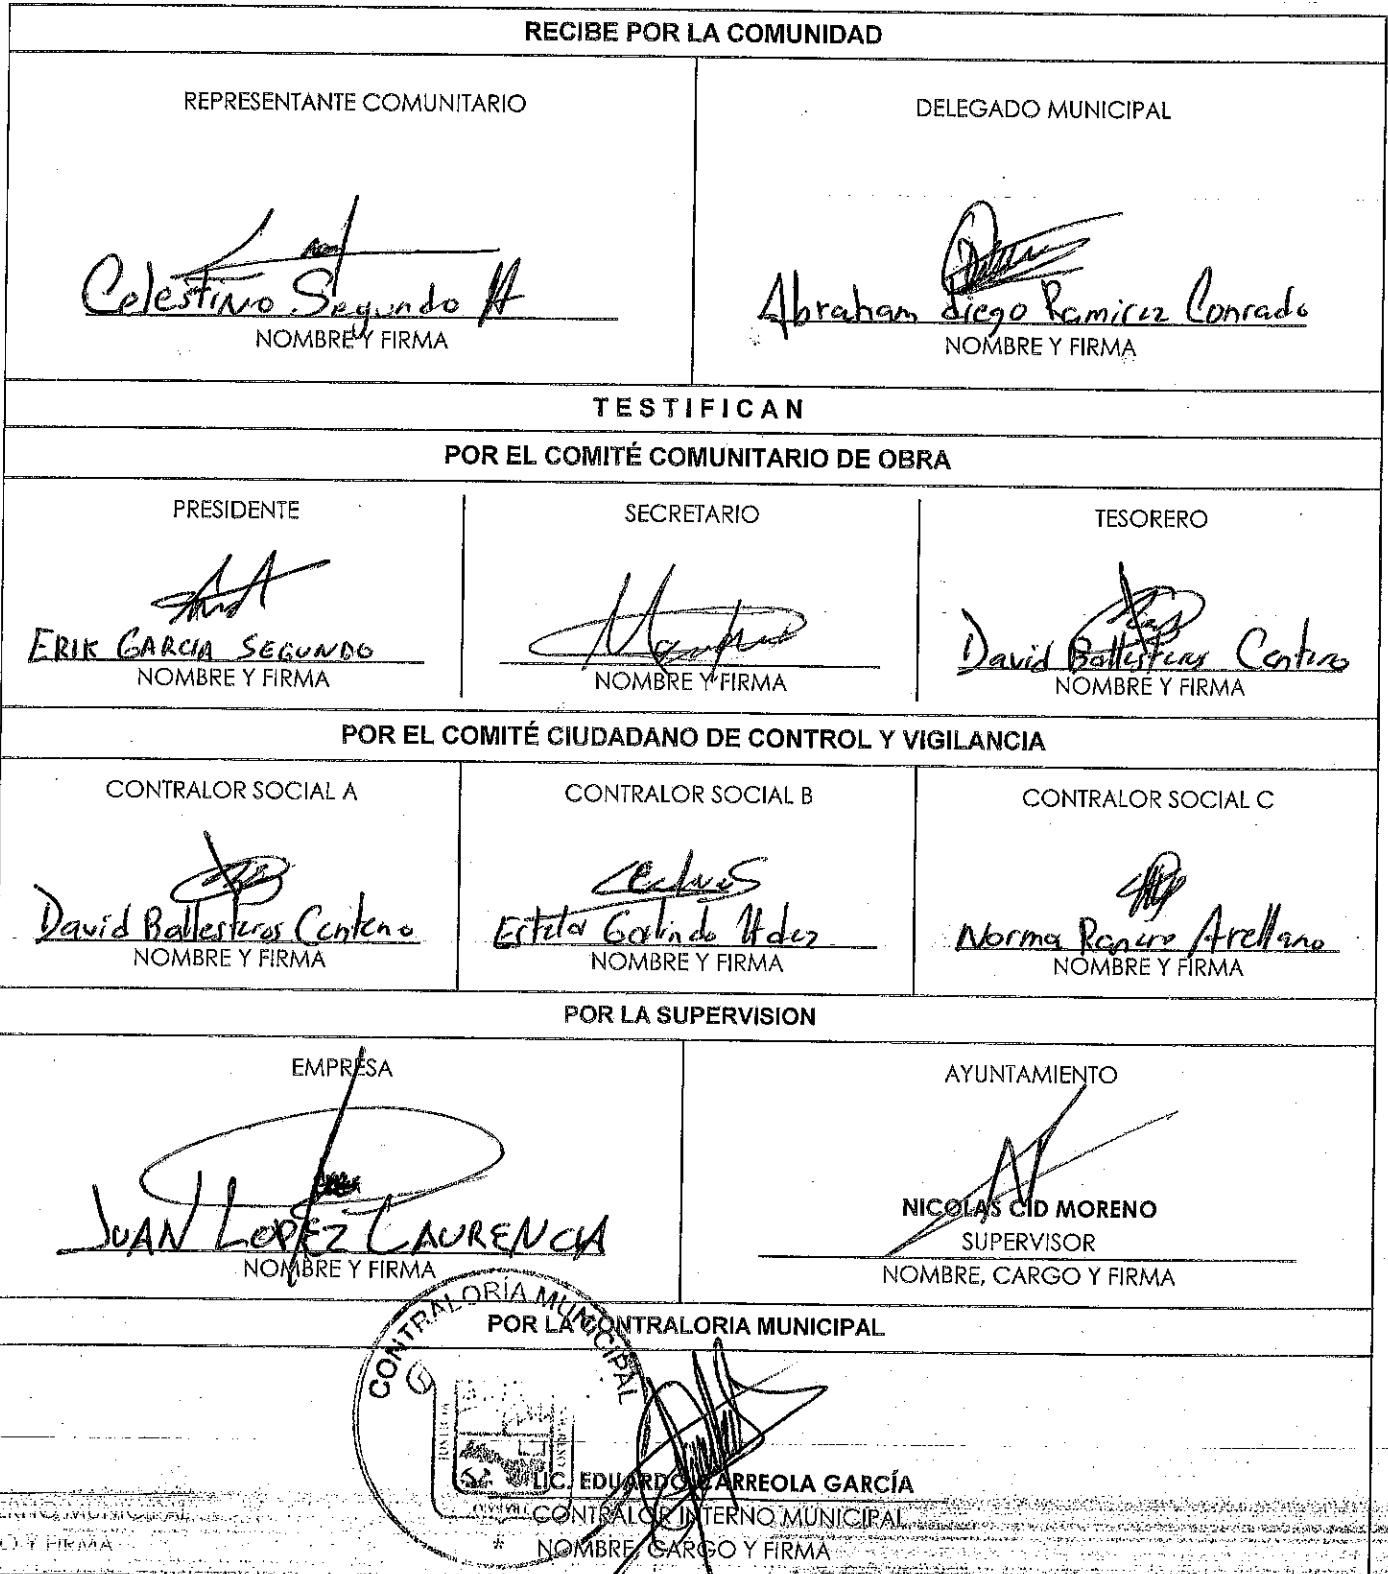 RECIBE POR LA COMUNIDAD
REPRESENTANTE COMUNITARIO
Celestino Segundo H
NOMBRE Y FIRMA
DELEGADO MUNICIPAL
Abraham diego Ramirez Conrado
NOMBRE Y FIRMA
TESTIFICAN
POR EL COMITÉ COMUNITARIO DE OBRA
PRESIDENTE
ERIK GARCIA SEGUNDO
NOMBRE Y FIRMA
SECRETARIO
NOMBRE Y FIRMA
TESORERO
David Ballesteros Centeno
NOMBRE Y FIRMA
POR EL COMITÉ CIUDADANO DE CONTROL Y VIGILANCIA
CONTRALOR SOCIAL A
David Ballesteros Centeno
NOMBRE Y FIRMA
CONTRALOR SOCIAL B
Estela Galindo Hdez
NOMBRE Y FIRMA
CONTRALOR SOCIAL C
Norma Arellano
NOMBRE Y FIRMA
POR LA SUPERVISION
EMPRESA
JUAN LOPEZ LAURENCIA
NOMBRE Y FIRMA
AYUNTAMIENTO
NICOLAS CID MORENO
SUPERVISOR
NOMBRE, CARGO Y FIRMA
CONTRALORÍA MUNICIPAL
POR LA CONTRALORIA MUNICIPAL
LIC. EDUARDO CARREOLA GARCÍA
CONTRALOR INTERNO MUNICIPAL
NOMBRE, CARGO Y FIRMA